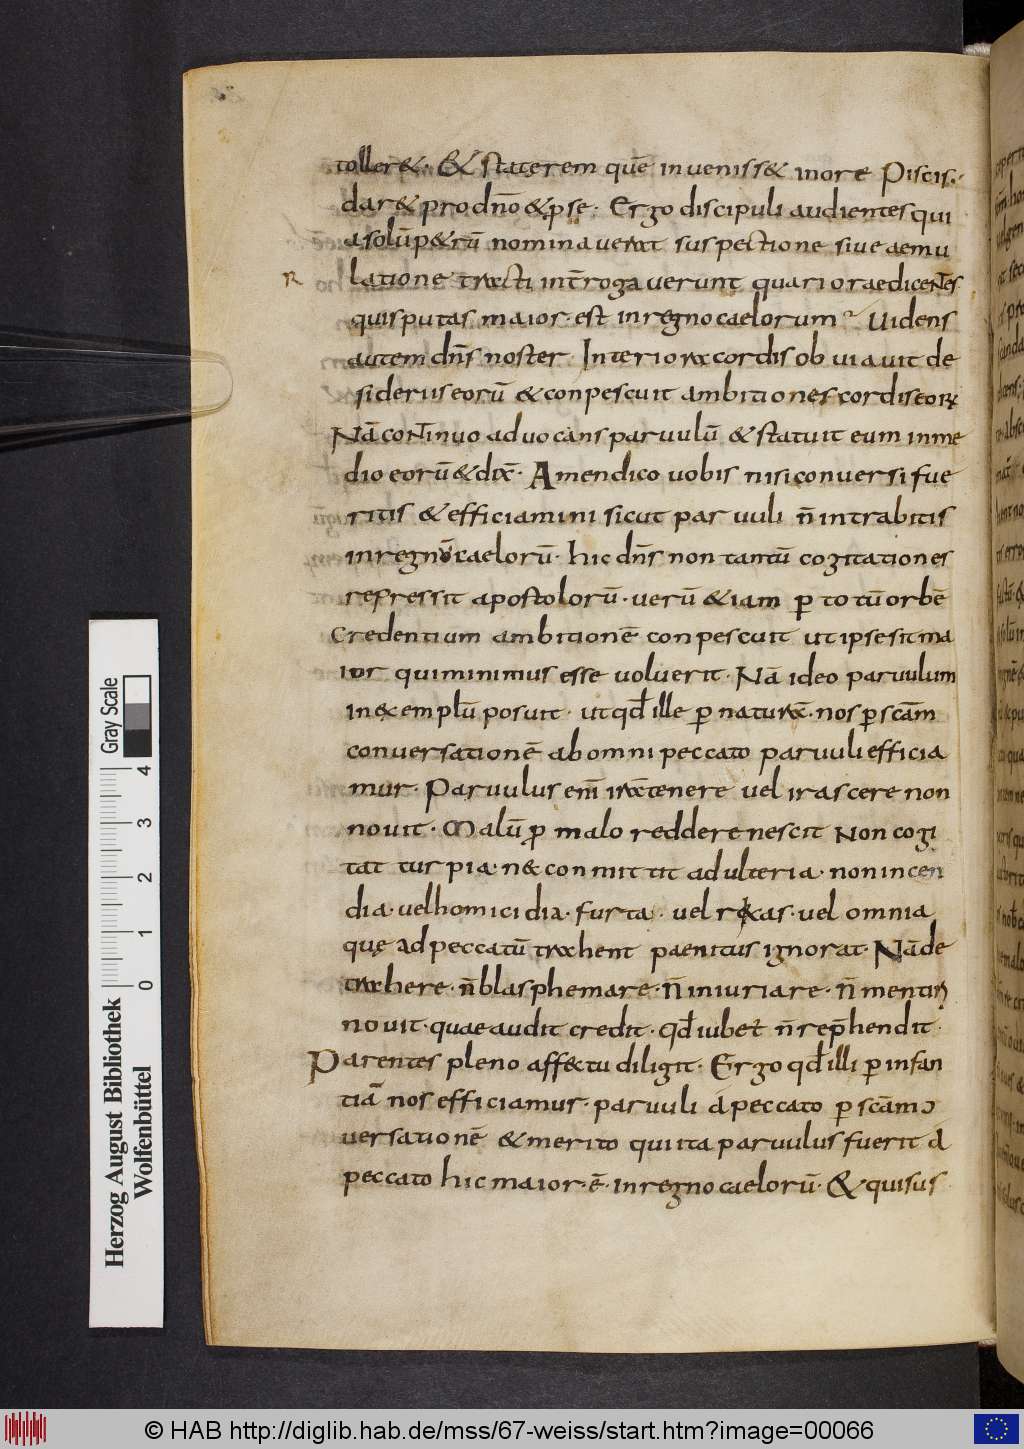 toller&. & staterem quē inueniss& inore Piscis.
dar& pro dn̄o & ipse. Ergo discipuli audientes qui
a solū p&rū nominauerat suspectione siue aemu
latione tracti int̄rogauerunt quari oraedicentes
quis putas maior est in regno caelorum Uidens
autem dn̄s noster Interiora cordis obuiauit de
sideriis eorū & conpescuit ambitiones cordis eorū
Nā continuo aduocans paruulū & statuit eum inme
dio eorū & dix̄. Amen dico uobis nisi conuersi fue
ritis & efficiamini sicut paruuli n̄ intrabitis
in regnū caelorū. hic dn̄s non tantū cogitationes
repressit apostolorū. uerū & iam ꝑ totū orbē
Credentium ambitionē conpescuit ut ipse sit ma
ior qui minimus esse uoluerit. Nā ideo paruulum
in exemplū posuit. ut qđ ille ꝑ naturā. nos ꝑ scām
conuersationē ab omni peccato paruuli efficia
mur. Paruulus enī irā tenere uel irascere non
nouit. Malū ꝓ malo reddere nescit Non cogi
tat turpia. nec committit adulteria. non incen
dia. uel homicidia. furta. uel rixas. uel omnia
quę ad peccatū trachent paenitus ignorat. Nā de
trachere. n̄ blasphemare. n̄ iniuriare. n̄ mentiri
nouit. quae audit credit. qđ iubet n̄ rephendit.
Parentes pleno affectu diligit. Ergo qđ illi ꝑ infan
tiā nos efficiamur. paruuli a peccato ꝑ scām ↄ
uersationē & merito qui ita paruulus fuerit a
peccato hic maior. ē. in regno caelorū. & quisus
R
Herzog August Bibliothek
Wolfenbüttel
Gray Scale
0 1 2 3 4
© HAB http://diglib.hab.de/mss/67-weiss/start.htm?image=00066